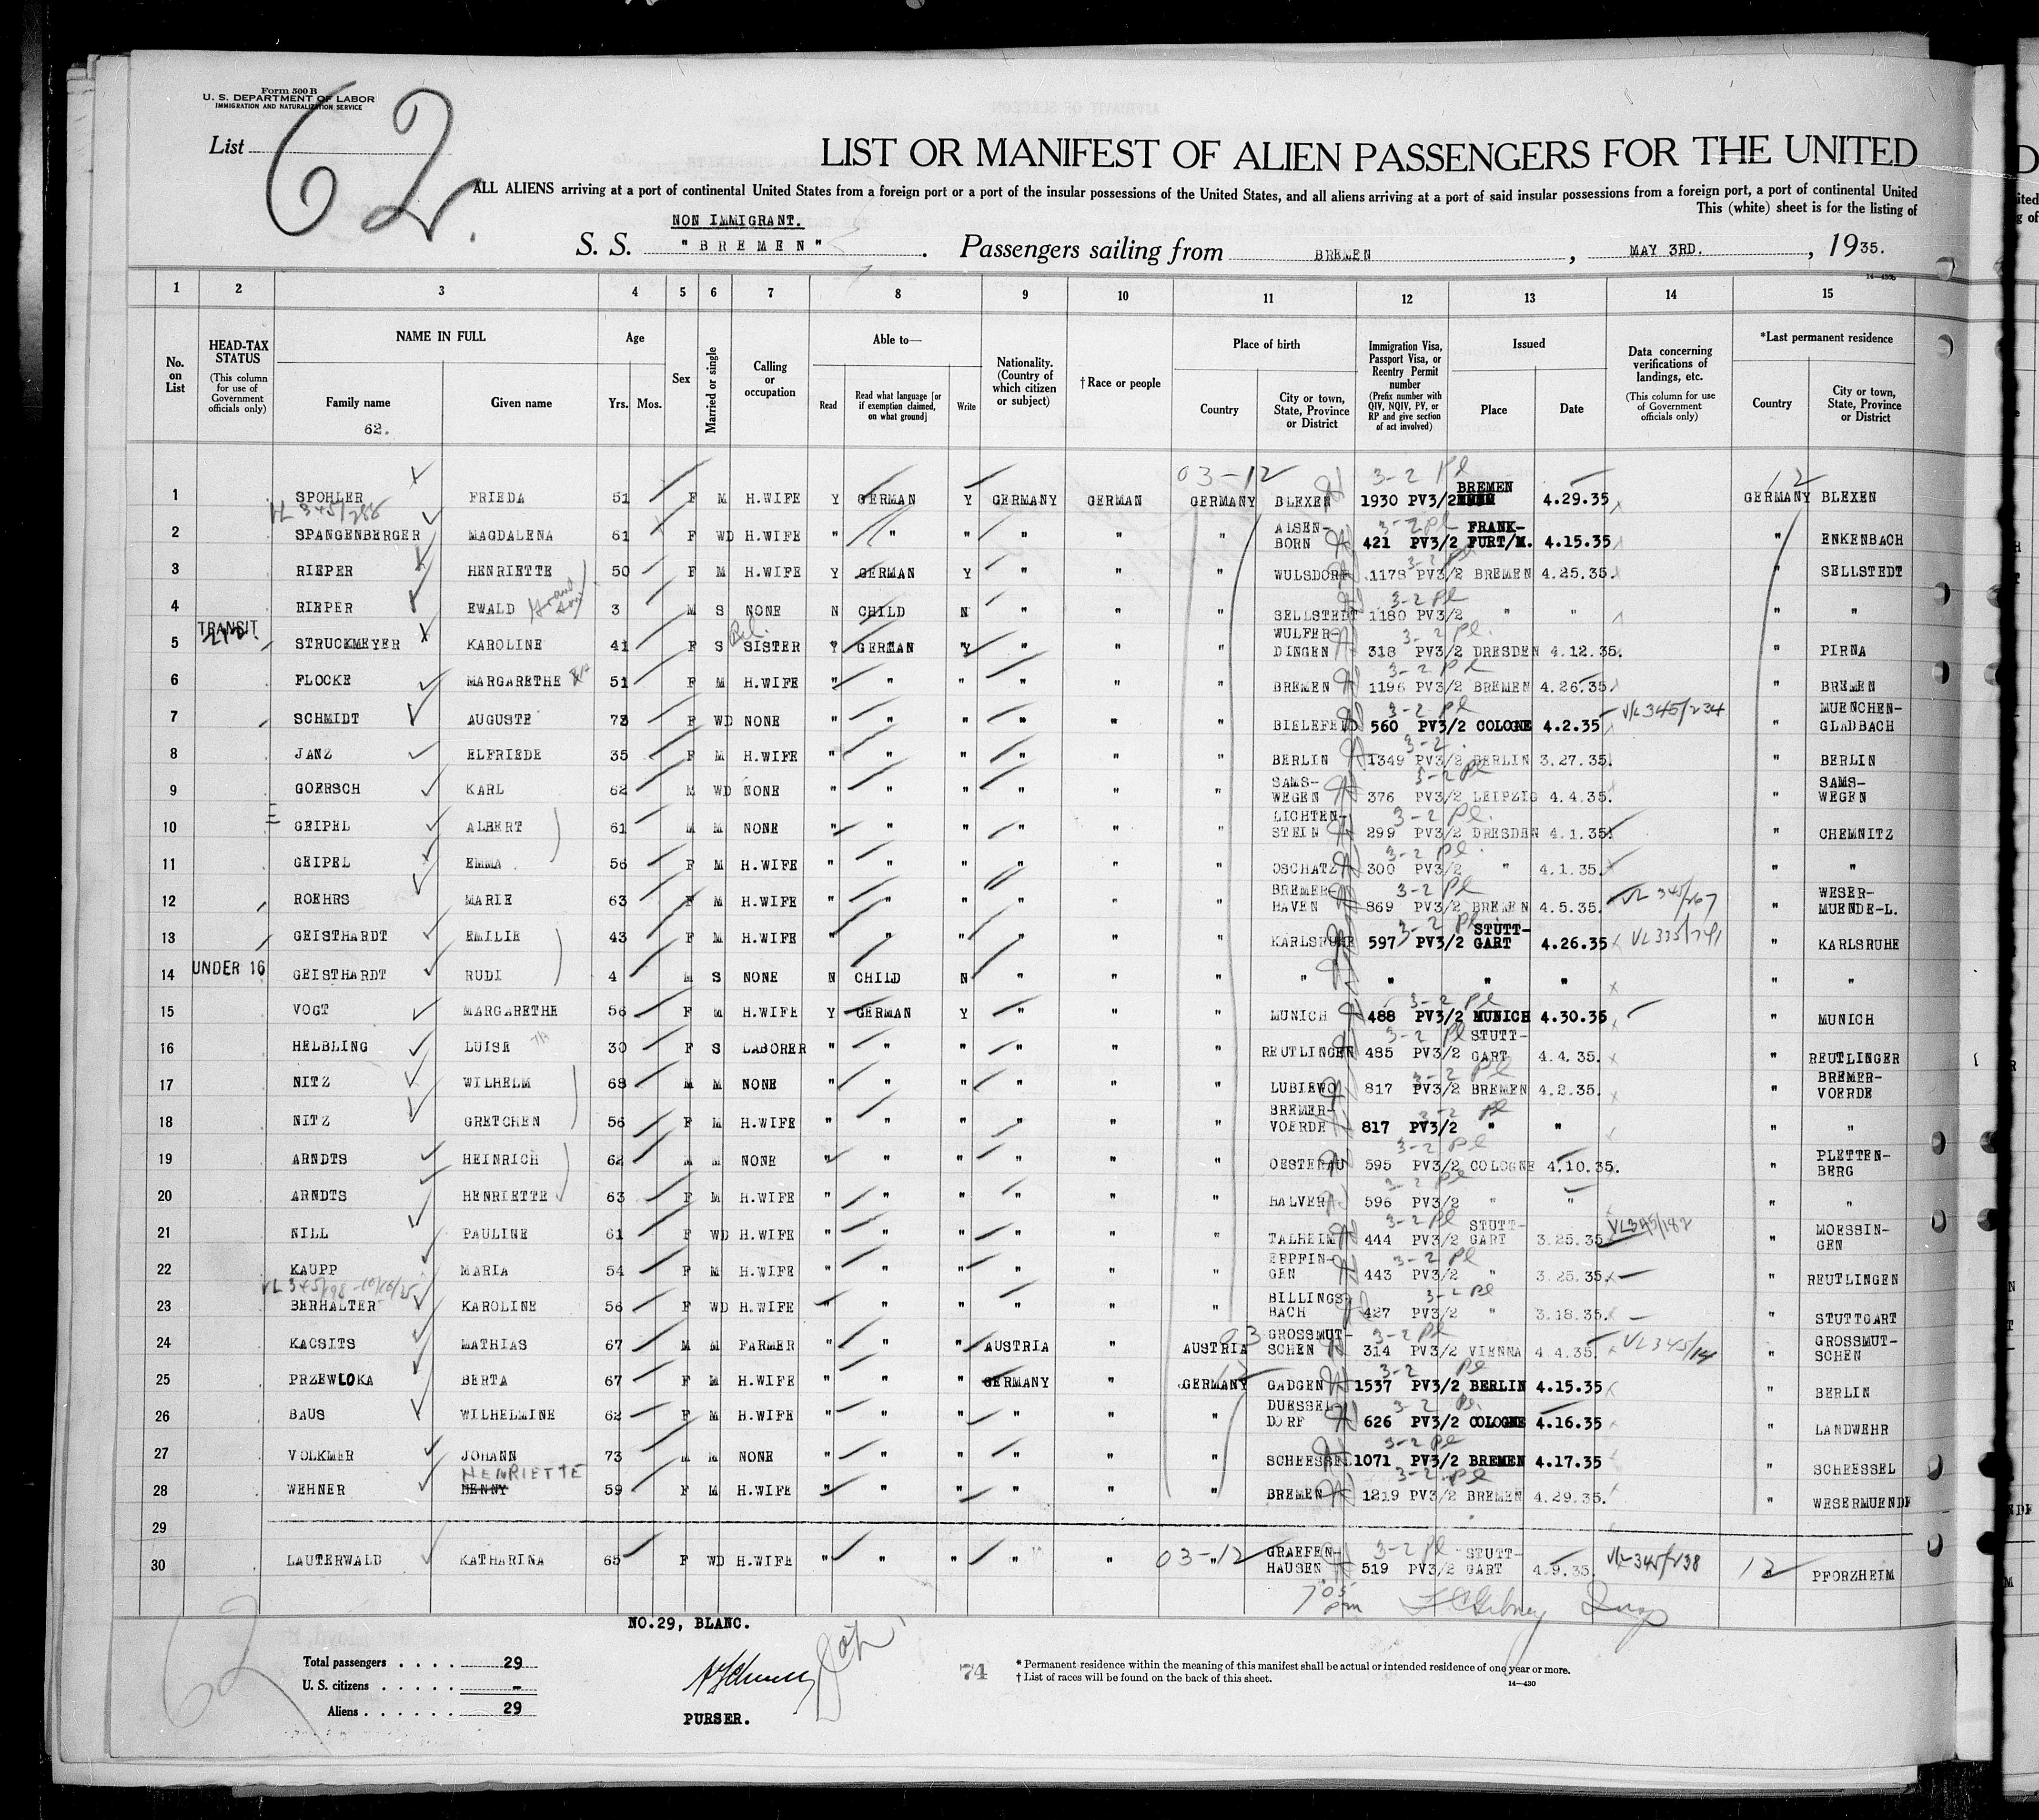 Form 500 B
U. S. DEPARTMENT OF LABOR
IMMIGRATION AND NATURALIZATION SERVICE
List 62.
LIST OR MANIFEST OF ALIEN PASSENGERS FOR THE UNITED
ALL ALIENS arriving at a port of continental United States from a foreign port or a port of the insular possessions of the United States, and all aliens arriving at a port of said insular possessions from a foreign port, a port of continental United
This (white) sheet is for the listing of
NON IMMIGRANT.
S. S. "BREMEN". Passengers sailing from BREMEN, MAY 3RD., 1935.
14—430b
1 2 3 4 5 6 7 8 9 10 11 12 13 14 15
No. on List
HEAD-TAX STATUS (This column for use of Government officials only)
NAME IN FULL
Family name Given name
62.
Age
Yrs. Mos.
Sex
Married or single
Calling or occupation
Able to—
Read Read what language [or if exemption claimed, on what ground] Write
Nationality. (Country of which citizen or subject)
†Race or people
Place of birth
Country City or town, State, Province or District
Immigration Visa, Passport Visa, or Reentry Permit number (Prefix number with QIV, NQIV, PV, or RP and give section of act involved)
Issued
Place Date
Data concerning verifications of landings, etc. (This column for use of Government officials only)
*Last permanent residence
Country City or town, State, Province or District
03-12 3-2 Pl 12
1 SPOHLER FRIEDA 51 F M H.WIFE Y GERMAN Y GERMANY GERMAN GERMANY BLEXEN 1930 PV3/2 BREMEN 4.29.35 GERMANY BLEXEN
VL 345/286
2 SPANGENBERGER MAGDALENA 61 F WD H.WIFE " " " " " " AISEN-BORN 3-2 Pl 421 PV3/2 FRANK-FURT/M. 4.15.35 " ENKENBACH
3 RIEPER HENRIETTE 50 F M H.WIFE Y GERMAN Y " " " WULSDORF 3-2 Pl 1178 PV3/2 BREMEN 4.25.35. " SELLSTEDT
4 RIEPER EWALD Grand son 3 M S NONE N CHILD N " " " SELLSTEDT 3-2 Pl 1180 PV3/2 " " " "
5 TRANSIT STRUCKMEYER KAROLINE 41 F S Rel. SISTER Y GERMAN Y " " " WULFER-DINGEN 3-2 Pl. 318 PV3/2 DRESDEN 4.12.35. " PIRNA
6 FLOCKE MARGARETHE 51 F M H.WIFE " " " " " " BREMEN 3-2 Pl 1196 PV3/2 BREMEN 4.26.35. " BREMEN
7 SCHMIDT AUGUSTE 73 F WD NONE " " " " " " BIELEFELD 3-2 Pl 560 PV3/2 COLOGNE 4.2.35 V/L 345/234 " MUENCHEN-GLADBACH
8 JANZ ELFRIEDE 35 F M H.WIFE " " " " " " BERLIN 3-2 1349 PV3/2 BERLIN 3.27.35. " BERLIN
9 GOERSCH KARL 62 M WD NONE " " " " " " SAMS-WEGEN 3-2 Pl 376 PV3/2 LEIPZIG 4.4.35. " SAMS-WEGEN
10 GEIPEL ALBERT 61 M M NONE " " " " " " LICHTEN-STEIN 3-2 Pl. 299 PV3/2 DRESDEN 4.1.35. " CHEMNITZ
11 GEIPEL EMMA 56 F M H.WIFE " " " " " " OSCHATZ 3-2 Pl. 300 PV3/2 " 4.1.35. " "
12 ROEHRS MARIE 63 F M H.WIFE " " " " " " BREMER-HAVEN 3-2 Pl 869 PV3/2 BREMEN 4.5.35. VL 345/267 " WESER-MUENDE-L.
13 GEISTHARDT EMILIE 43 F M H.WIFE " " " " " " KARLSRUHE 3-2 Pl 597 PV3/2 STUTT-GART 4.26.35 VL335/741 " KARLSRUHE
14 UNDER 16 GEISTHARDT RUDI 4 M S NONE N CHILD N " " " " " " " " "
15 VOGT MARGARETHE 56 F M H.WIFE Y GERMAN Y " " " MUNICH 3-2 Pl 488 PV3/2 MUNICH 4.30.35 " MUNICH
16 HELBLING LUISE 30 F S LABORER " " " " " " REUTLINGEN 3-2 Pl 485 PV3/2 STUTT-GART 4.4.35. " REUTLINGER
17 NITZ WILHELM 68 M M NONE " " " " " " LUBIEWO 3-2 Pl 817 PV3/2 BREMEN 4.2.35. " BREMER-VOERDE
18 NITZ GRETCHEN 56 F M H.WIFE " " " " " " BREMER-VOERDE 3-2 Pl 817 PV3/2 " " " "
19 ARNDTS HEINRICH 62 M M NONE " " " " " " OESTERAU 3-2 Pl 595 PV3/2 COLOGNE 4.10.35. " PLETTEN-BERG
20 ARNDTS HENRIETTE 63 F M H.WIFE " " " " " " HALVER 3-2 Pl 596 PV3/2 " " " "
21 NILL PAULINE 61 F WD H.WIFE " " " " " " TALHEIM 3-2 Pl 444 PV3/2 STUTT-GART 3.25.35 VL345/182 " MOESSIN-GEN
22 KAUPP MARIA 54 F M H.WIFE " " " " " " ERPFIN-GEN 3-2 Pl 443 PV3/2 " 3.25.35. " REUTLINGEN
23 BERHALTER KAROLINE 56 F WD H.WIFE " " " " " " BILLINGS-BACH 3-2 Pl 427 PV3/2 " 3.18.35. " STUTTGART
24 KACSITS MATHIAS 67 M M FARMER " " " AUSTRIA " AUSTRIA 03 GROSSMUT-SCHEN 3-2 Pl 314 PV3/2 VIENNA 4.4.35. VL345/14 " GROSSMUT-SCHEN
25 PRZEWLOKA BERTA 67 F M H.WIFE " " " GERMANY " GERMANY 12 GADGEN 3-2 Pl 1537 PV3/2 BERLIN 4.15.35 " BERLIN
26 BAUS WILHELMINE 62 F M H.WIFE " " " " " " DUESSEL-DORF 3-2 Pl. 626 PV3/2 COLOGNE 4.16.35 " LANDWEHR
27 VOLKMER JOHANN 73 M M NONE " " " " " " SCHEESSEL 3-2 Pl 1071 PV3/2 BREMEN 4.17.35 " SCHEESSEL
28 WEHNER HENNY HENRIETTE 59 F M H.WIFE " " " " " " BREMEN 3-2 Pl 1219 PV3/2 BREMEN 4.29.35. " WESERMUENDE
29
30 LAUTERWALD KATHARINA 65 F WD H.WIFE " " " " " 03-12 " GRAEFEN-HAUSEN 3-2 Pl 519 PV3/2 STUTT-GART 4.9.35. V/L 345/238 12 PFORZHEIM
7:05 pm
NO.29, BLANC.
Total passengers . . . . 29
U. S. citizens . . . . . -
Aliens . . . . . . 29
PURSER.
74
* Permanent residence within the meaning of this manifest shall be actual or intended residence of one year or more.
† List of races will be found on the back of this sheet.
14—430
62